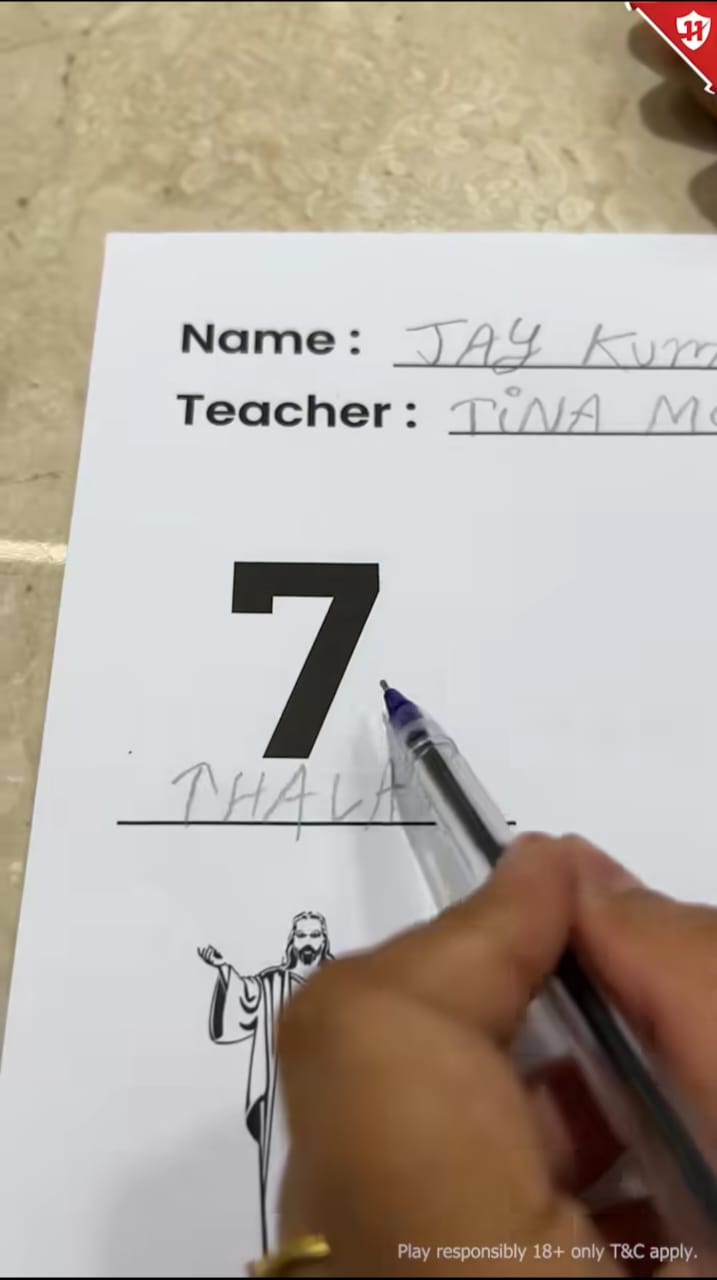 Name : JAY
Teacher : TiNA
7
THALA
Play responsibly 18+ only T&C apply.